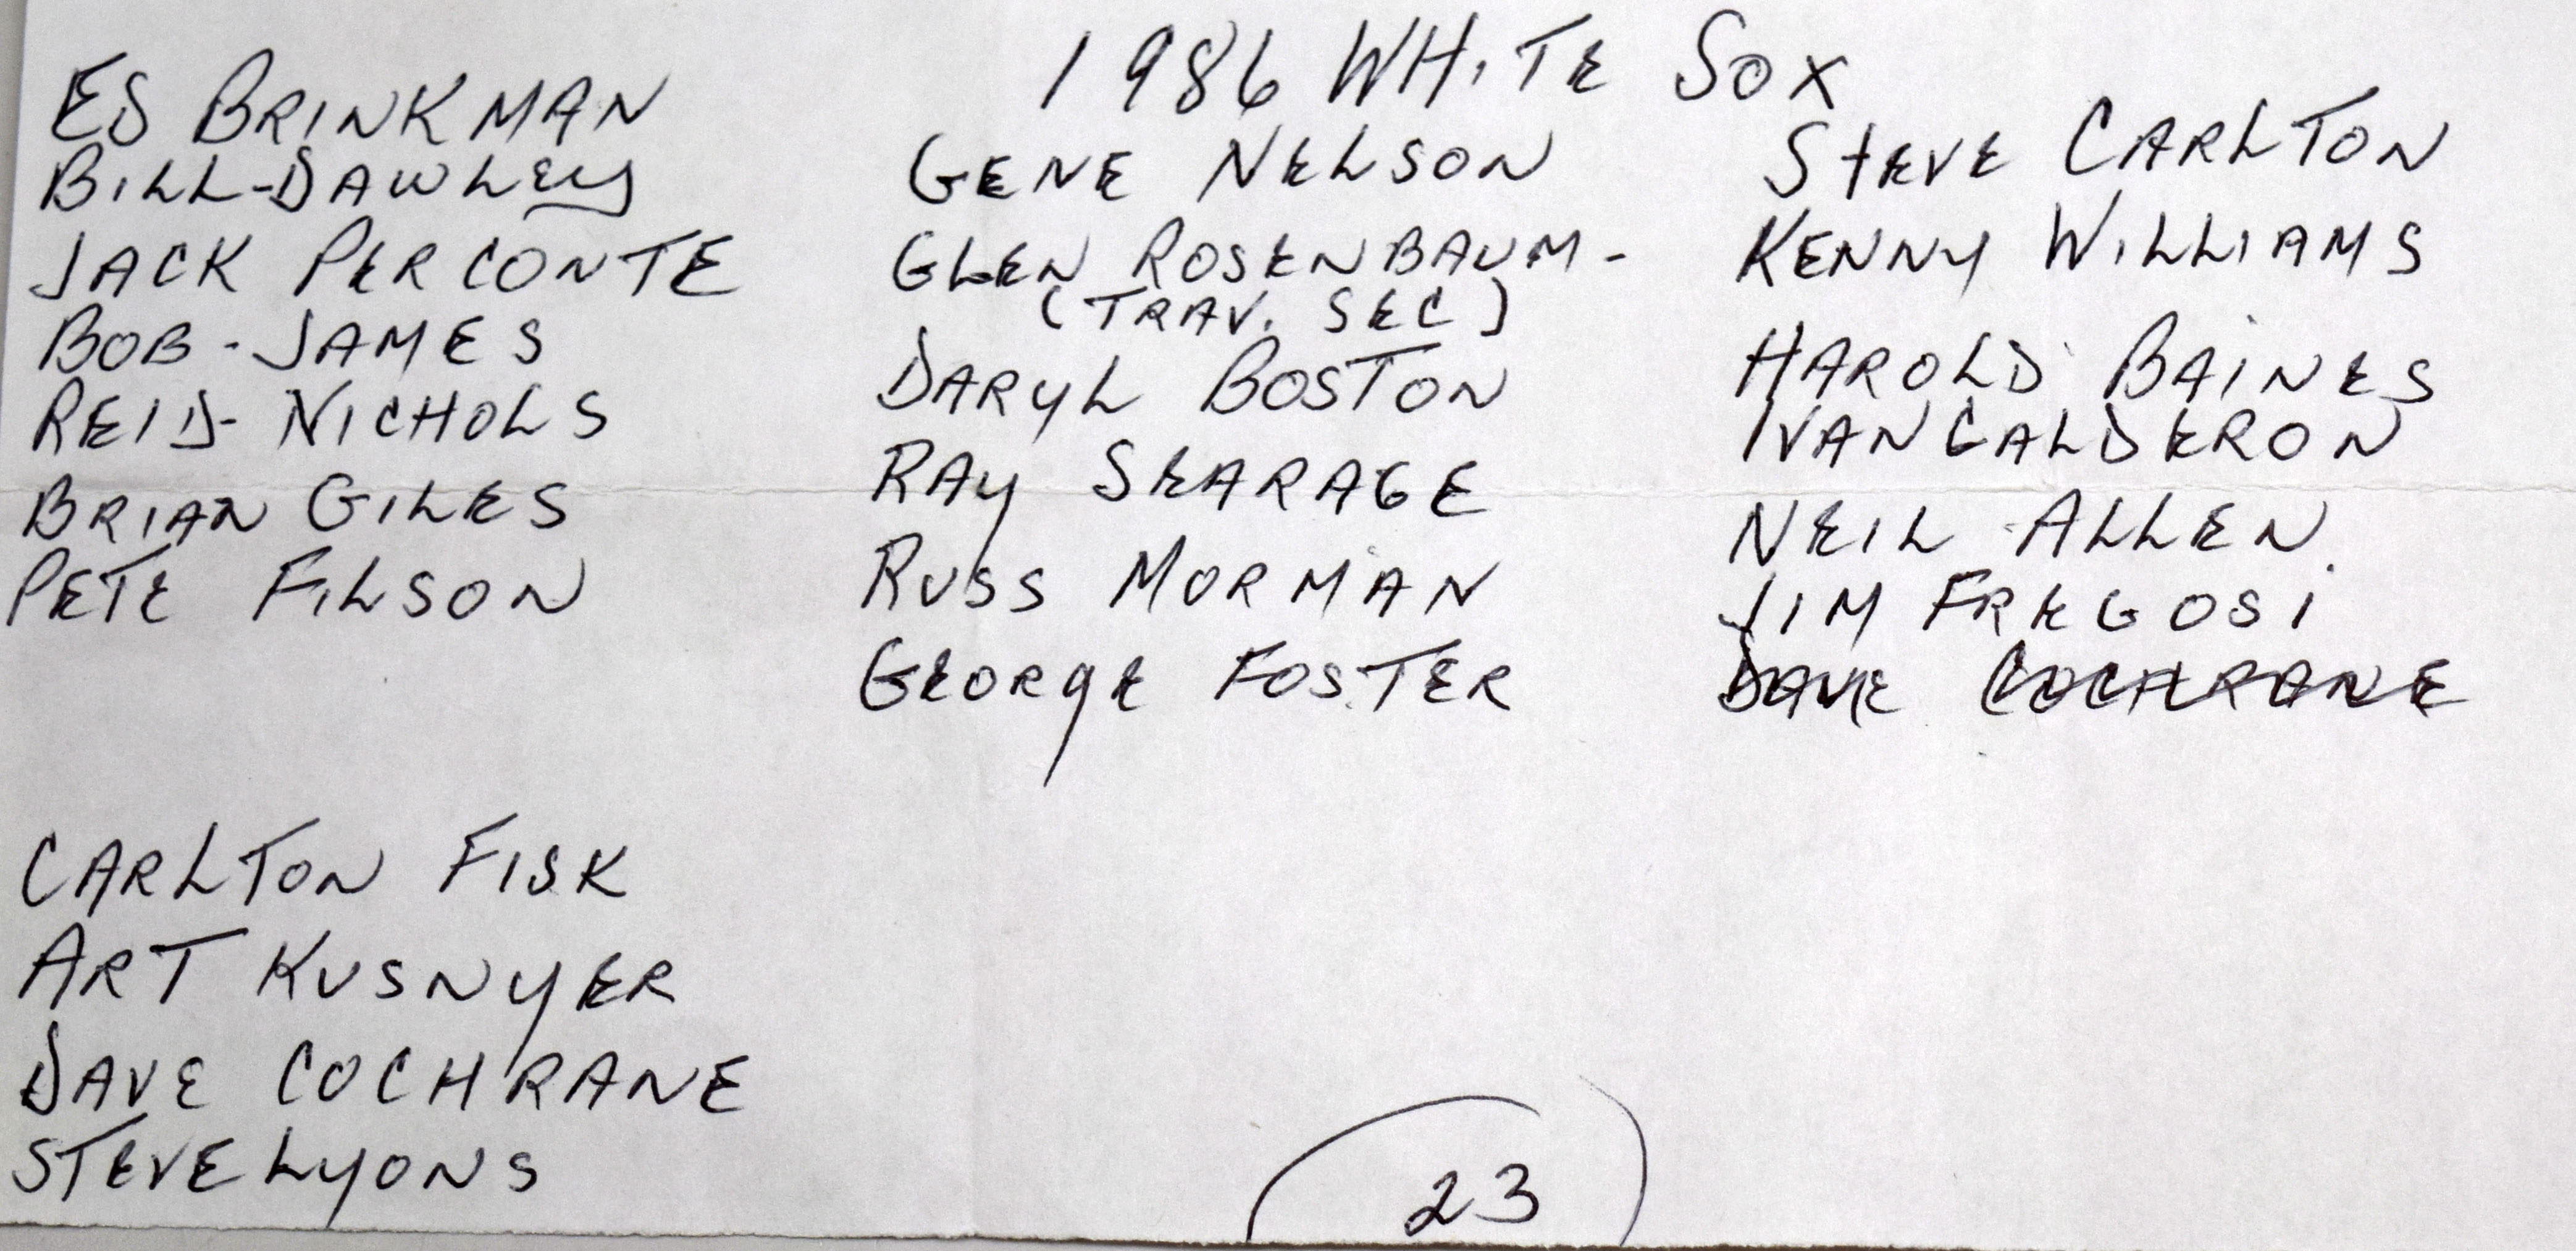 1986 WHITE SOX
ED BRINKMAN
BILL-DAWLEY
JACK PERCONTE
BOB-JAMES
REID-NICHOLS
BRIAN GILES
PETE FILSON
CARLTON FISK
ART KUSNYER
DAVE COCHRANE
STEVE LYONS
GENE NELSON
GLEN ROSENBAUM-
(TRAV. SEC)
DARYL BOSTON
RAY SEARAGE
RUSS MORMAN
GEORGE FOSTER
STEVE CARLTON
KENNY WILLIAMS
HAROLD BAINES
IVAN CALDERON
NEIL ALLEN
JIM FREGOSI
DAVE COCHRANE
23